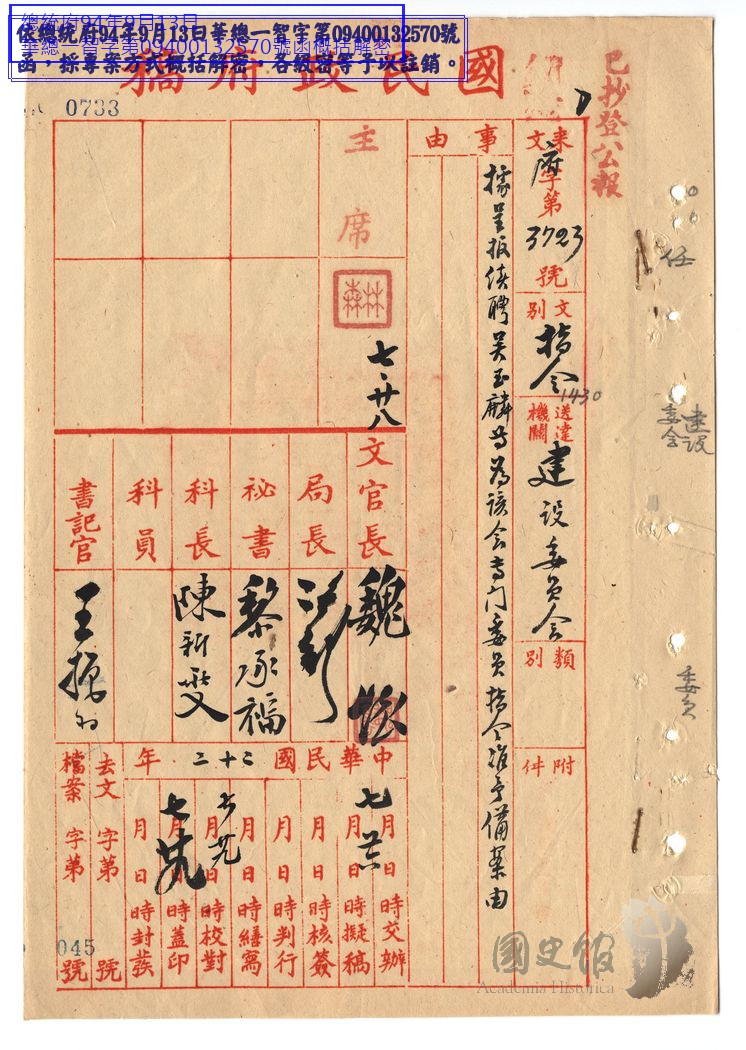 總統府94年9月13日
華總一智字第09400132570號函概括解密
依總統府94年9月13日華總一智字第09400132570號
函，採專案方式概括解密，各級密等予以註銷。
國民政府稿
已抄登公報
0733
來文 府字第3723號
文別 指令
1430
送達機關 建設委員會
類別
附件
事由
據呈報續聘吳玉麟等為該會專門委員指令准予備案由
主席
林森
七、廿八
文官長 魏懷
局長
秘書 黎承福
科長 陳新燮
科員
書記官
中華民國二十二年
七月 日時交辦
月 日時擬稿
月 日時核簽
月 日時判行
月 日時繕寫
月 日時校對
七月 日時蓋印
月 日時封發
去文 字第 號
檔案 字第 號
045
任
建設委會
委員
國史館
Academia Historica